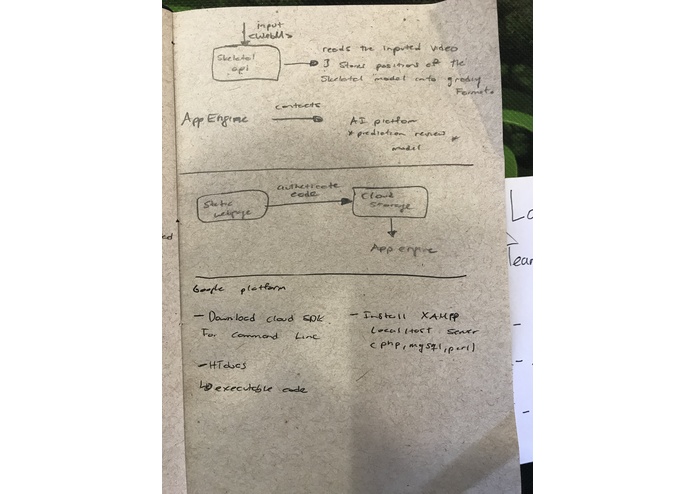 input
Skeletal
api
reads the inputed video
& Stores positions of the
Skeletal model into
Formats
App Engine
contacts
AI platform
* prediction review *
model
authenticate
code
Static
webpage
Cloud
Storage
App engine
Google platform
- Download cloud SDK
For Command Line
- Install XAMPP
Local Host Server
( php, mysql, perl)
executable code
ed
Lo
Tear